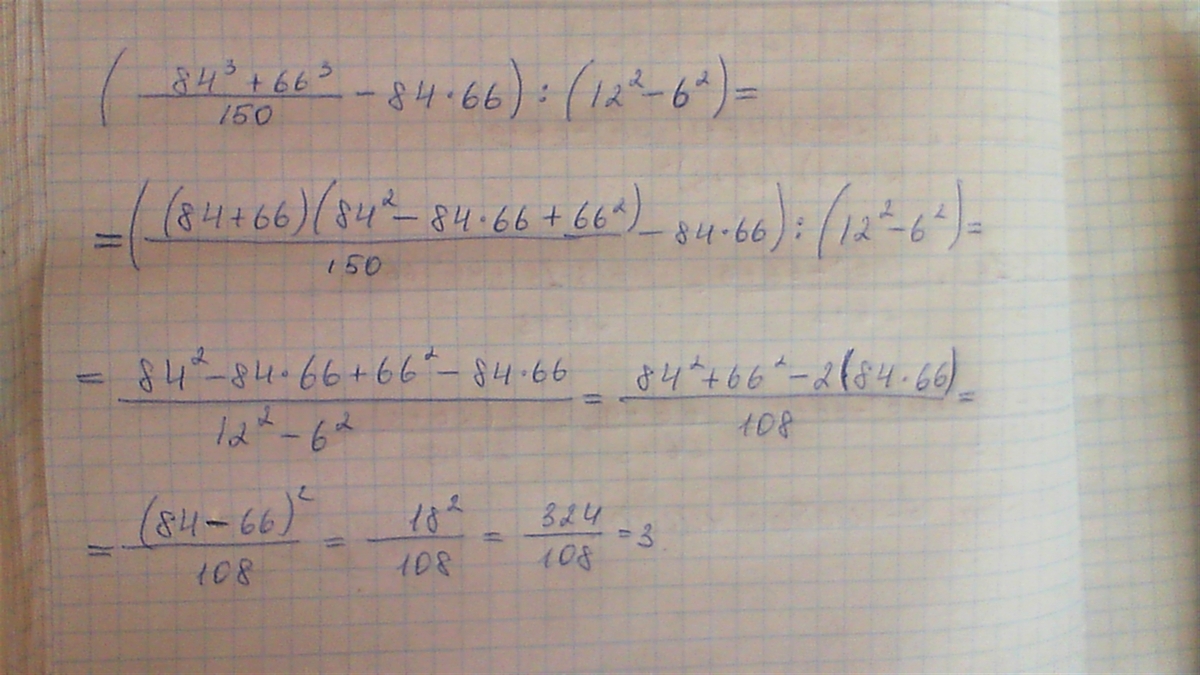 ( (84³ + 66³)/150 − 84·66) : (12² − 6²) =
= ( ((84+66)(84² − 84·66 + 66²))/150 − 84·66) : (12² − 6²) =
= (84² − 84·66 + 66² − 84·66)/(12² − 6²) = (84² + 66² − 2(84·66))/108 =
= (84 − 66)²/108 = 18²/108 = 324/108 = 3